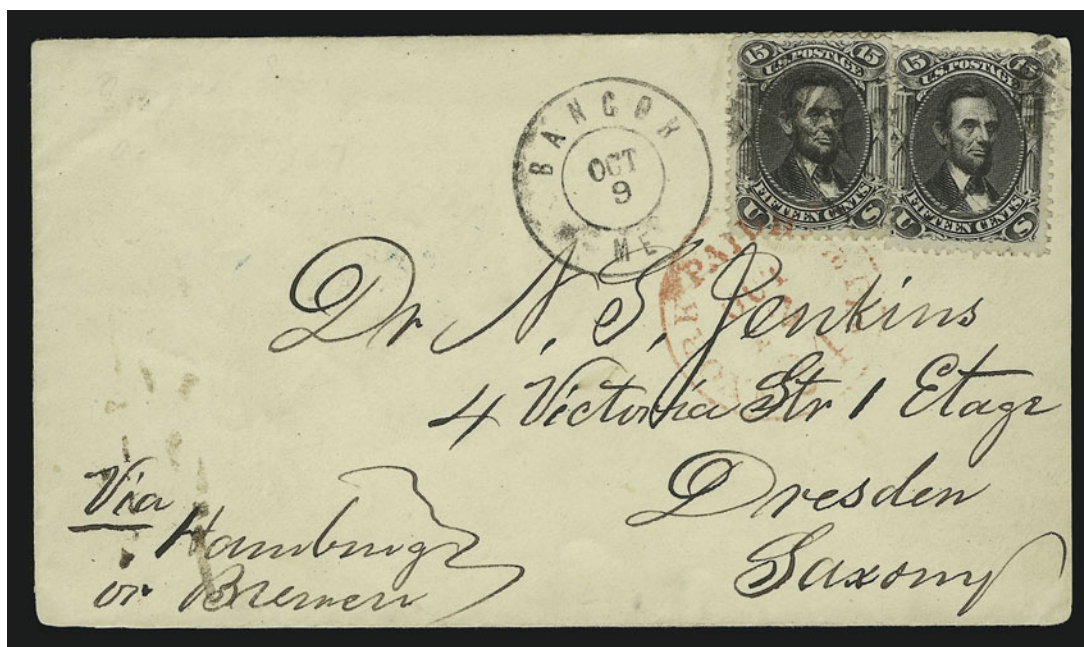 15 15
U.S. POSTAGE
FIFTEEN CENTS
U S
15 15
U.S. POSTAGE
FIFTEEN CENTS
U S
BANGOR
OCT
9
ME
PAID
OCT
Dr N. S. Jenkins
4 Victoria Str 1 Etage
Dresden
Saxony
Via
Hamburg
or Bremen